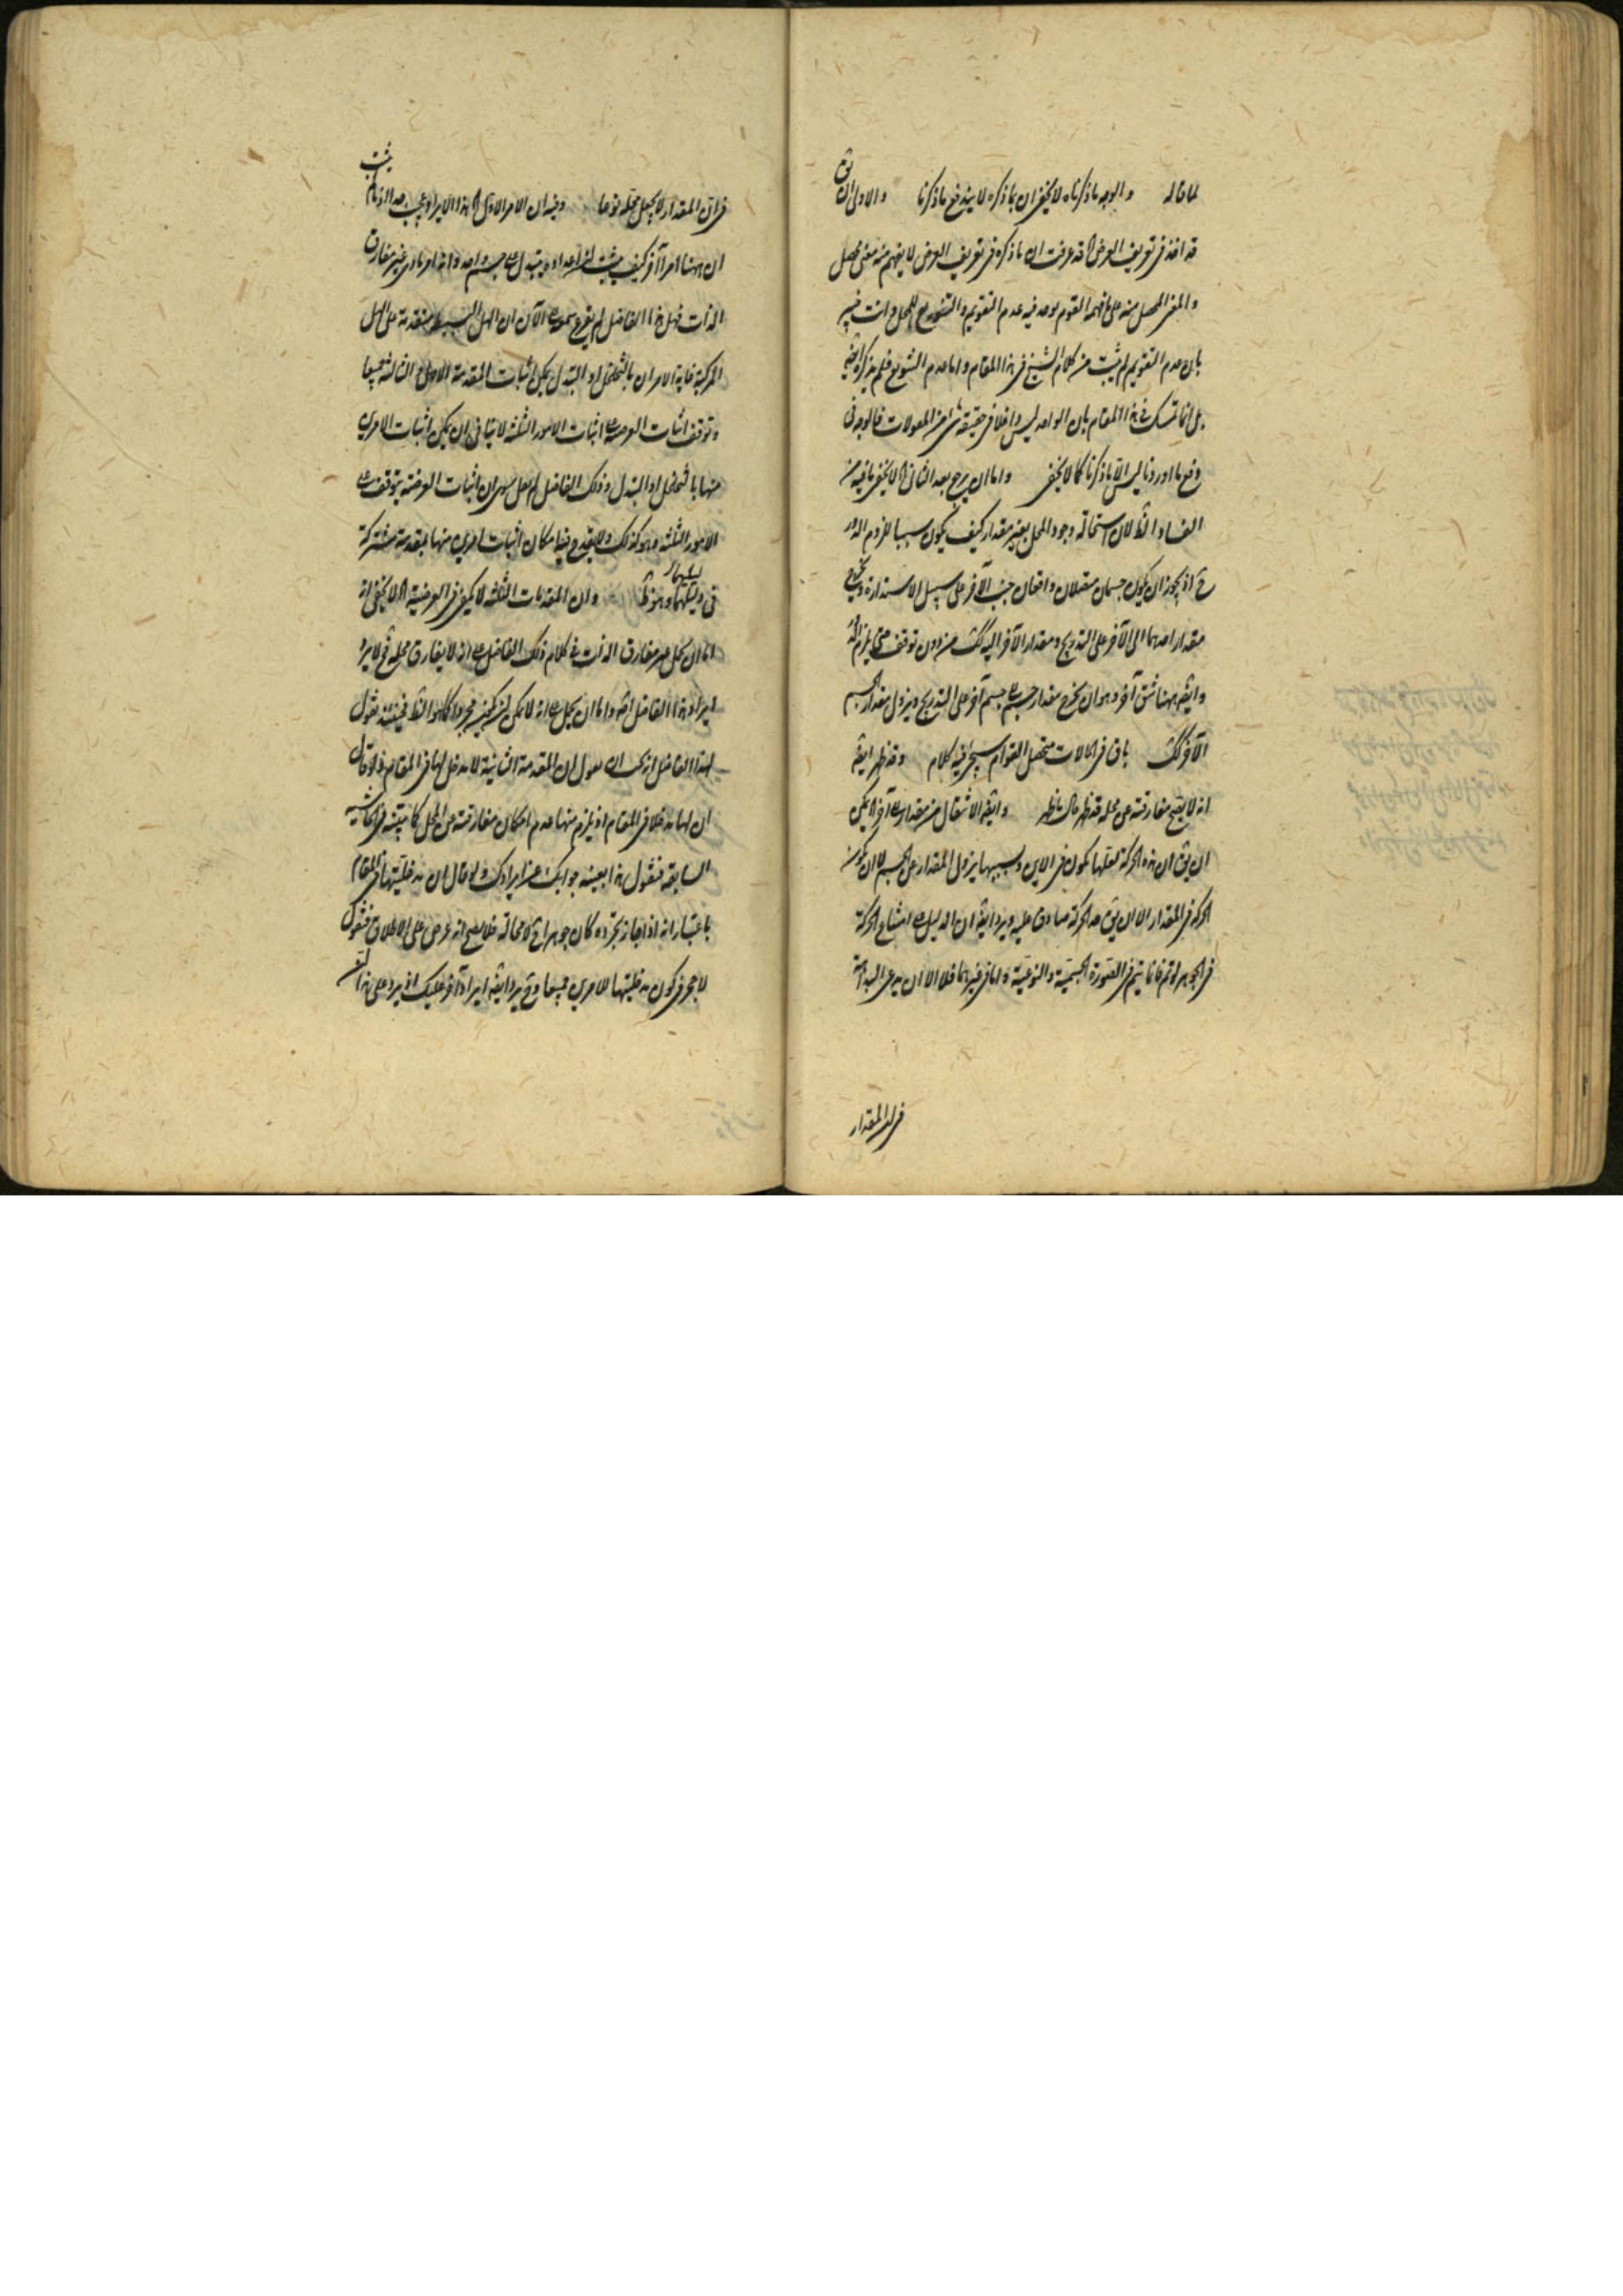 لما قاله والوجه ما ذكرناه لا يخفى ان بما ذكره لا يندفع ما ذكرنا والاولى ان يق
قد اخذ فى تعريف العرض اه قد عرفت ان ما ذكره فى تعريف العرض لا يفهم منه معنى محصل
والمعنى المحصل منه على ما فهمه القوم يوجد فيه عدم التقويم والتنويع للمحل وانت خبير
بان عدم التقويم لم يثبت من كلام الشيخ فى هذا المقام واما عدم التنويع فلم يذكره الشيخ
بل انما تمسك فى هذا المقام بان الواحد ليس داخلا فى حقيقة شئ من المقولات فالوجه فى
دفع ما اوردنا ليس الا ما ذكرنا كما لا يخفى واما ان يرجع بعد الثانى اه لا يخفى ما فيه من
الفساد الظ لان استحالة وجود المحل بغير مقدار كيف يكون سببا للزوم الدور
ح اذ يجوز ان يكون جسمان متصلان واقعان جنب الآخر على سبيل الاستدارة ويخرج
مقدار احدهما الى الآخر على التدريج ومقدار الآخر اليه كك من دون توقف حتى يلزم الدور
وايضه ههنا شق آخر وهو ان يخرج مقدار جسم عن جسم آخر على التدريج ويزول مقدار الجسم
الآخر كك باق فى حالات متحصل القوام سيجئ فيه كلام وقد ظهر ايضه
انه لا يصح مفارقته عن محله قد ظهر حال ما ظهر وايضه الانتقال من مقدار الى آخر اه يمكن
ان يق ان هذه الحركة لعلها تكون فى الاين وبسببها يزول المقدار عن الجسم لا ان يكون
الحركة فى المقدار الا ان يق حد الحركة صادق عليه ويرد ايضه ان الدليل على امتناع الحركة
فى الجوهر لو تم فانما يتم فى الصورة الجسمية والنوعية واما فى غيرهما فلا الا ان يدعى البداهة
فى ان المقدار
فى ان المقدار لا يجعل محله نوعا وفيه ان الامر الاول اه هذا الايراد عجيب بعد الزام يثبت
ان ههنا امرا آخر كيف يثبت ان اعداده يتبدل على جسم واحد وانه امر مادى غير مفارق
الذات فهل هذا الفاضل لم يقرع سمعه الى الآن ان الهل البسيط متقدمة على الهل
المركبة غاية الامر ان بالتخلخل او التبدل يمكن اثبات المقدمة الاولى والثالثة جميعا
وتوقف اثبات العرضية على اثبات الامور الثلثة لا ينافى ان يمكن اثبات الامرين
منها بالتخلخل او التبدل وذلك الفاضل لم يقل سوى ان اثبات العرضية يتوقف على
الامور الثلثة وهو كذلك ولا يقدح فيه امكان اثبات امرين منها بمقدمة مشتركة
فى دليليهما وهو ظ وان المقدمات الثلثة لا يكفى فى العرضية اه لا يخفى انه
اما ان يحمل غير مفارق الذات فى كلام ذلك الفاضل على انه لا يفارق محله فح لا يرد
ايراد هذا الفاضل اصلا واما ان يحمل على انه لا يمكن ان يكون مجردا كما هو الظ فحينئذ نقول
لهذا الفاضل انه يجب ان يقول ان المقدمة الثانية لا مدخل لها فى المقام ولو قال
ان لها مدخلا فى المقام اذ يلزم منها عدم امكان مفارقته عن المحل كما بينته فى الحاشية
السابقة فنقول هذا بعينه جوابك عن ايرادك ولو قال ان مدخليتها فى المقام
باعتبار انه اذا جاز تجرده كان جوهرا ح لا محالة فلا يصح انه عرض على الاطلاق فنقول
لا حجر فى كون مدخليتها للامرين جميعا وح يرد ايضه ايراد آخر عليك اذ يرد على هذا